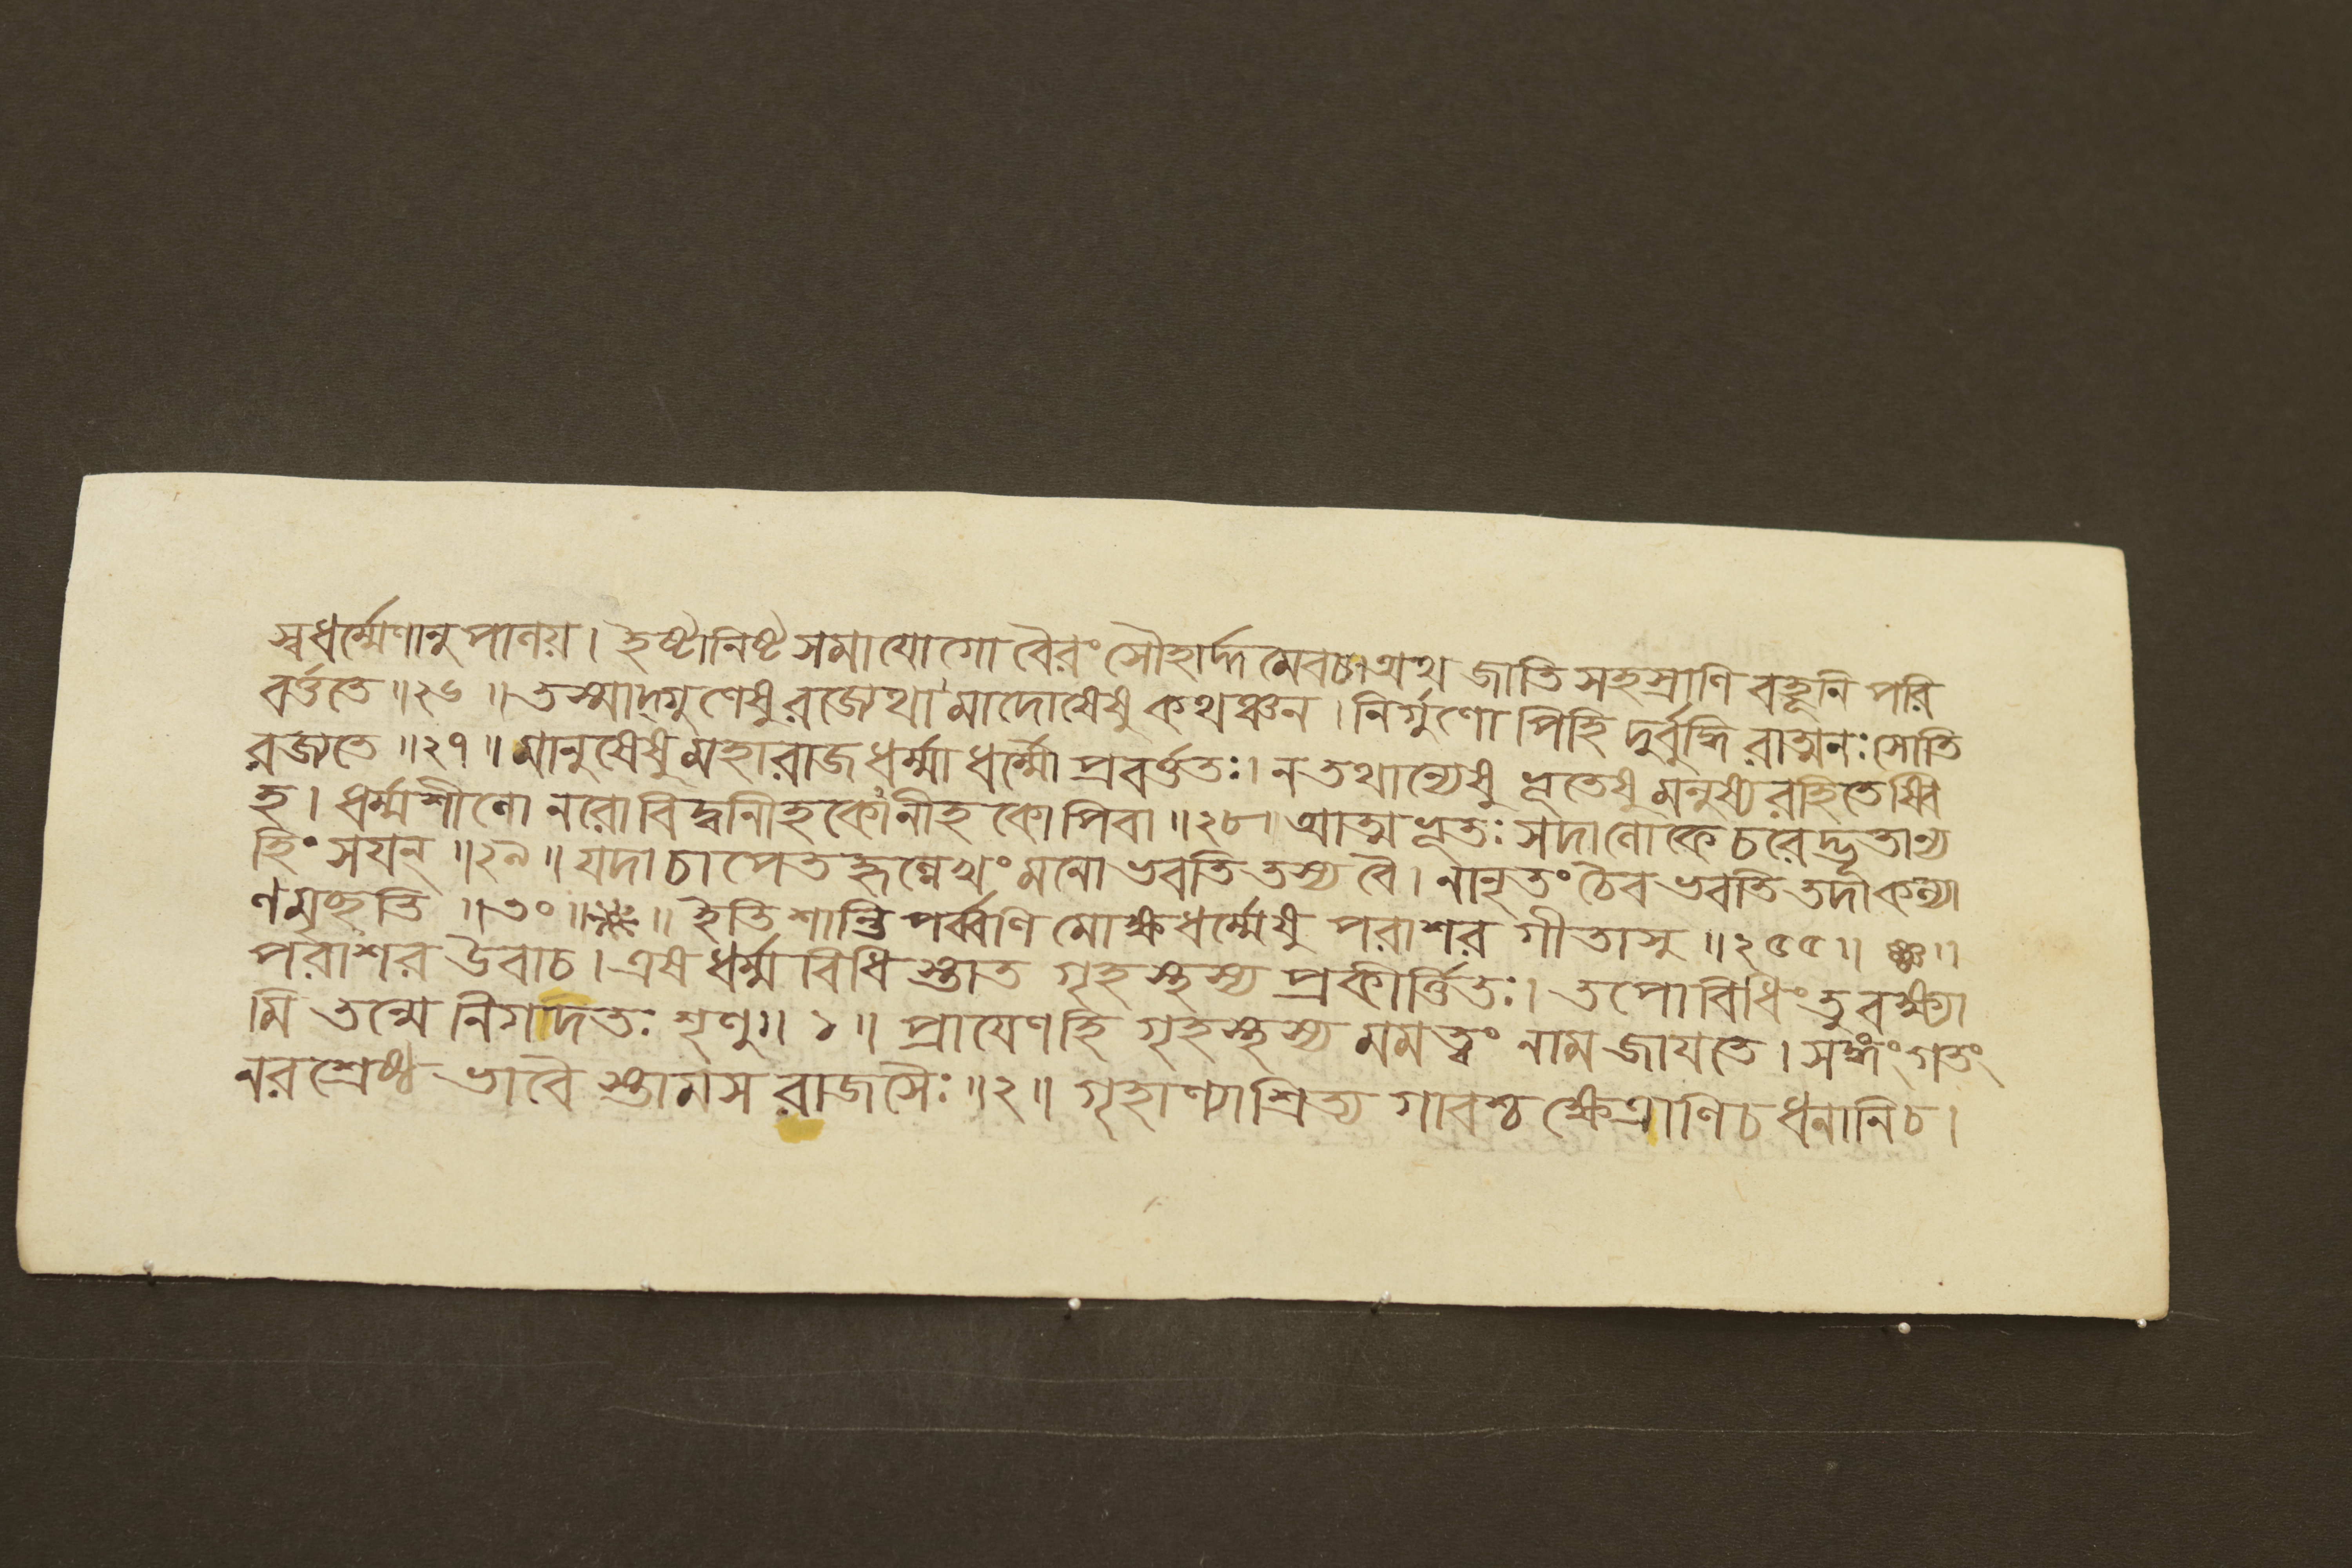 স্বধর্ম্মেণানুপালয়। ইষ্টানিষ্টসমাযোগো বৈরং সৌহার্দ্দমেবচ। অথ জাতি সহস্রাণি বহূনি পরি
বর্ত্ততে ॥২৬॥ তস্মাদ্গুণেষু রজ্যেথা মাদোষেষু কথঞ্চন। নির্গুণোপিহি দুর্বুদ্ধিরাত্মনঃ সোতি
রজ্যতে ॥২৭॥ মানুষেষু মহারাজ ধর্ম্মাধর্ম্মৌ প্রবর্ত্ততঃ। ন তথান্যেষু ভূতেষু মনুষ্য রহিতেষ্বি
হ। ধর্ম্মশীলো নরো বিদ্বানীহকোনীহকোপিবা ॥২৮॥ আত্মভূতঃ সদালোকে চরেদ্ভূতান্য
হিংসয়ন্ ॥২৯॥ যদা চাপেতহৃল্লেখং মনো ভবতি তস্য বৈ। নানৃতং চৈব ভবতি তদা কল্যা
ণমৃচ্ছতি ॥৩০॥ ॥ ইতি শান্তি পর্ব্বণি মোক্ষধর্ম্মেষু পরাশর গীতাসু ॥২৫৫॥
পরাশর উবাচ। এষ ধর্ম্ম বিধিস্তাত গৃহস্থস্য প্রকীর্ত্তিতঃ। তপোবিধিং তু বক্ষ্যা
মি তন্মে নিগদতঃ শৃণু॥ ১॥ প্রায়েণহি গৃহস্থস্য মমত্বং নাম জায়তে। সঙ্গং গতং
নরশ্রেষ্ঠ ভাবৈস্তামস রাজসৈঃ॥২॥ গৃহাণ্যাশ্রিত্য গাবশ্চ ক্ষেত্রাণিচ ধনানিচ।